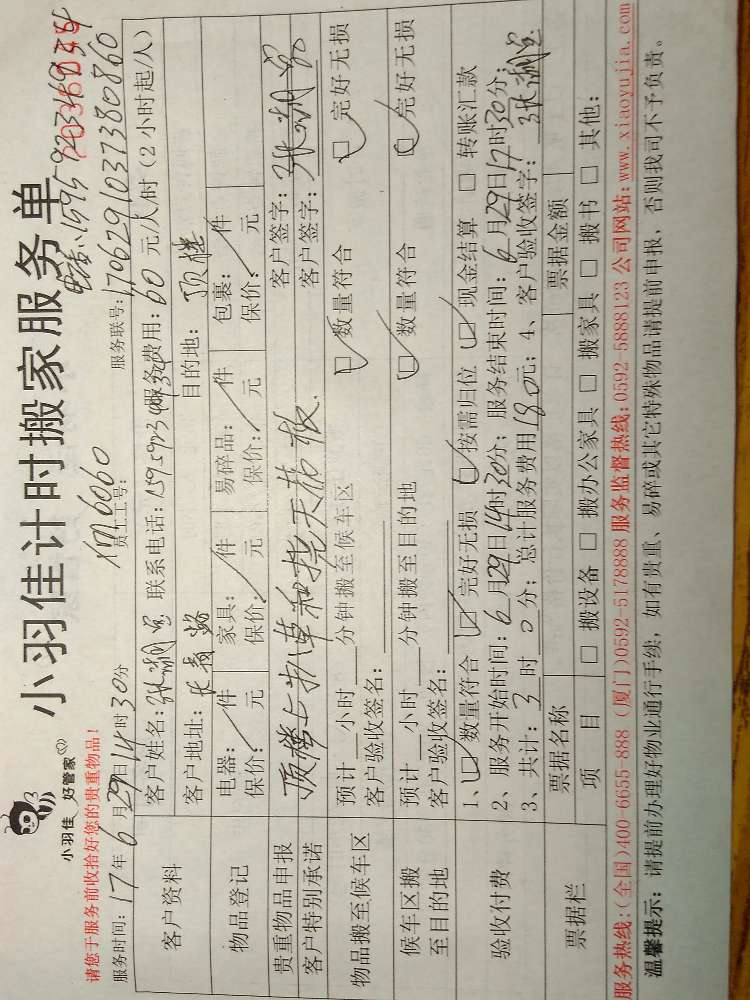 小羽佳 好管家
小羽佳计时搬家服务单
请您于服务前收拾好您的贵重物品!
员工工号: 6060
服务时间: 17年6月29日14时30分
服务联号: 170629103738086​0
客户资料
客户姓名: 张 联系电话: 服务费用: 60元/人/时（2小时起/人）
客户地址: 目的地: 顶楼
物品登记
电器: 件 家具: 件 易碎品: 件 包裹: 件
保价: 元 保价: 元 保价: 元 保价: 元
贵重物品申报 客户签字: 张
客户特别承诺 客户签字:
顶楼上扒草和挠天苔板.
物品搬至候车区
预计 小时 分钟搬至候车区 数量符合 完好无损
客户验收签名:
候车区搬至目的地
预计 小时 分钟搬至目的地 数量符合 完好无损
客户验收签名:
验收付费
1、数量符合 完好无损 按需归位 现金结算 转账汇款
2、服务开始时间: 6月29日14时30分; 服务结束时间: 6月29日17时30分;
3、共计: 3时0分; 总计服务费用180元; 4、客户验收签字: 张
票据栏
票据名称 票据金额
项目 搬设备 搬办公家具 搬家具 搬书 其他:
服务热线:(全国)400-6655-888 (厦门)0592-5178888 服务监督热线:0592-5888123 公司网站:www.xiaoyujia.com
温馨提示: 请提前办理好物业通行手续，如有贵重、易碎或其它特殊物品请提前申报，否则我司不予负责。